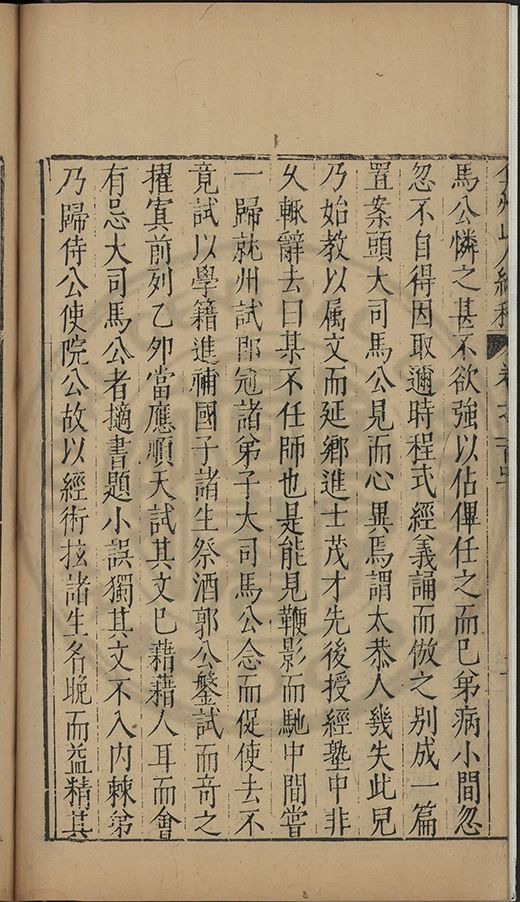 弇州山人續稿 卷之一百四
馬公憐之甚不欲強以佔俾任之而已弟病小間忽
忽不自得因取邇時程式經義誦而倣之別成一篇
置案頭大司馬公見而心異焉謂太恭人幾失此兒
乃始教以属文而延鄉進士茂才先後授經塾中非
久輙辭去曰某不任師也是能見鞭影而馳中間嘗
一歸就州試郡冠諸弟子大司馬公念而促使去不
竟試以學籍進補國子諸生祭酒郭公鎜試而奇之
擢寘前列乙夘當應順天試其文已藉藉人耳而會
有忌大司馬公者擿書題小誤獨其文不入内棘弟
乃歸侍公使院公故以經術㧓諸生名晚而益精其